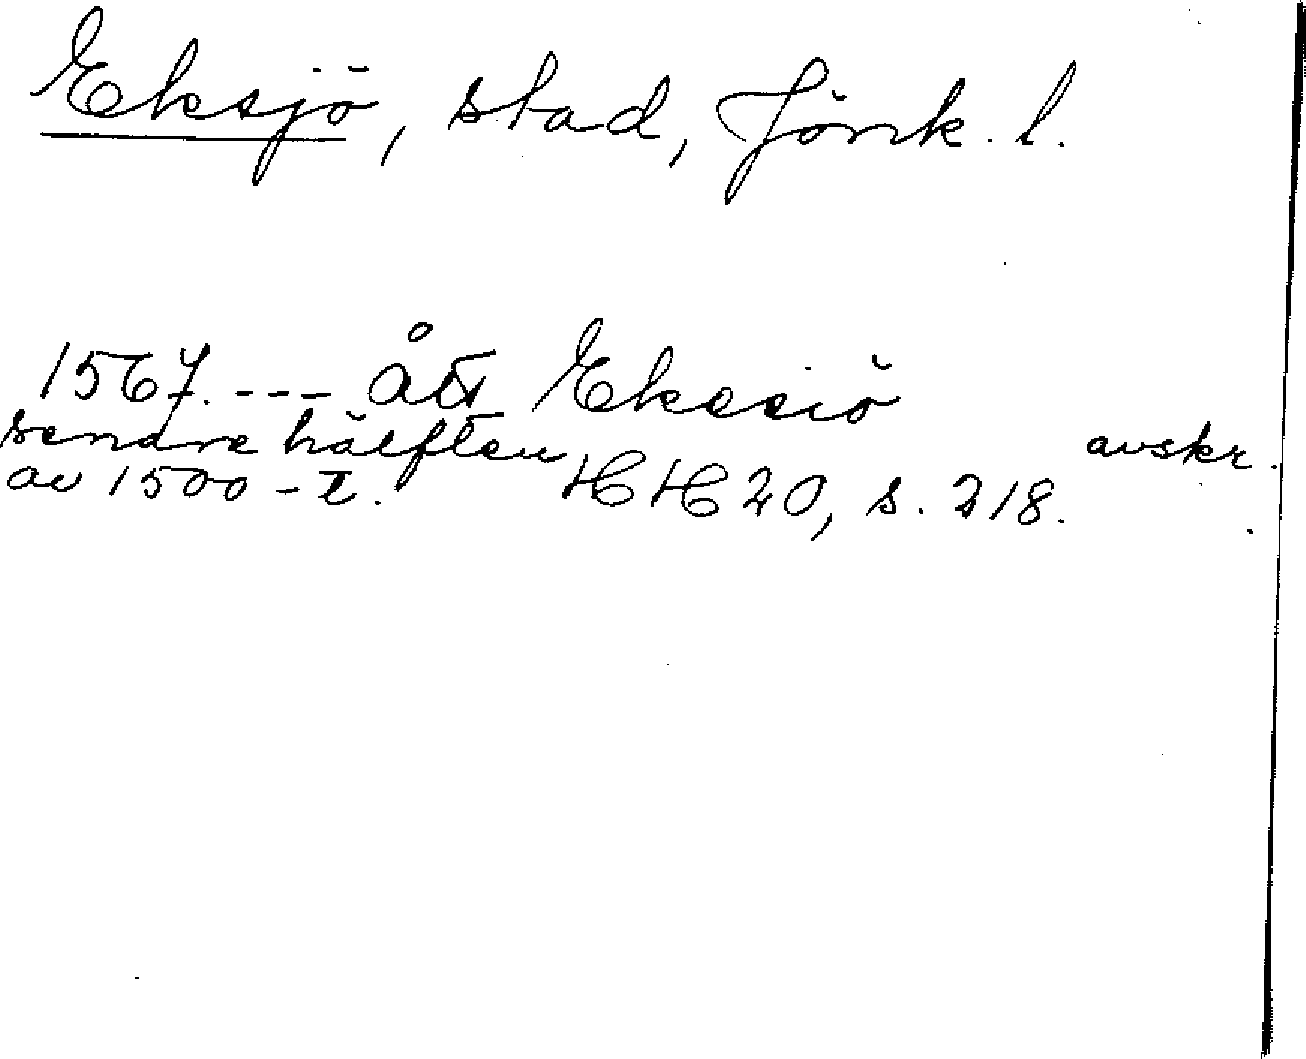 Eksjö, stad, Jönk. l.
1567. --- ått Ekesiö
senare hälften avskr.
av 1500-t. HH 20, s. 218.